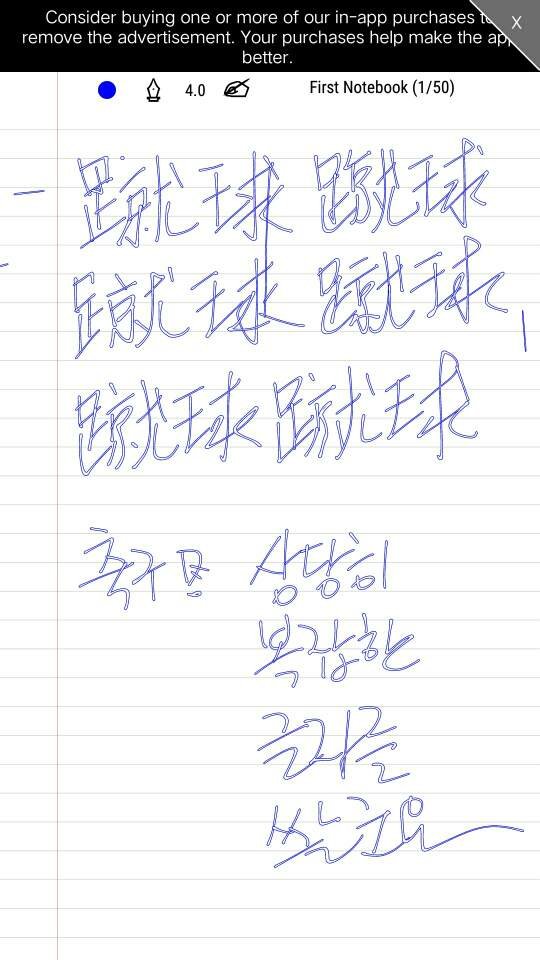 Consider buying one or more of our in-app purchases to
remove the advertisement. Your purchases help make the app
better.
X
4.0 First Notebook (1/50)
蹴球 蹴球
蹴球 蹴球
蹴球 蹴球
축구 상당히
복잡한
글자를